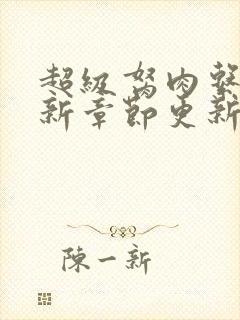 超級努肉繫
新章節更新
陳一新